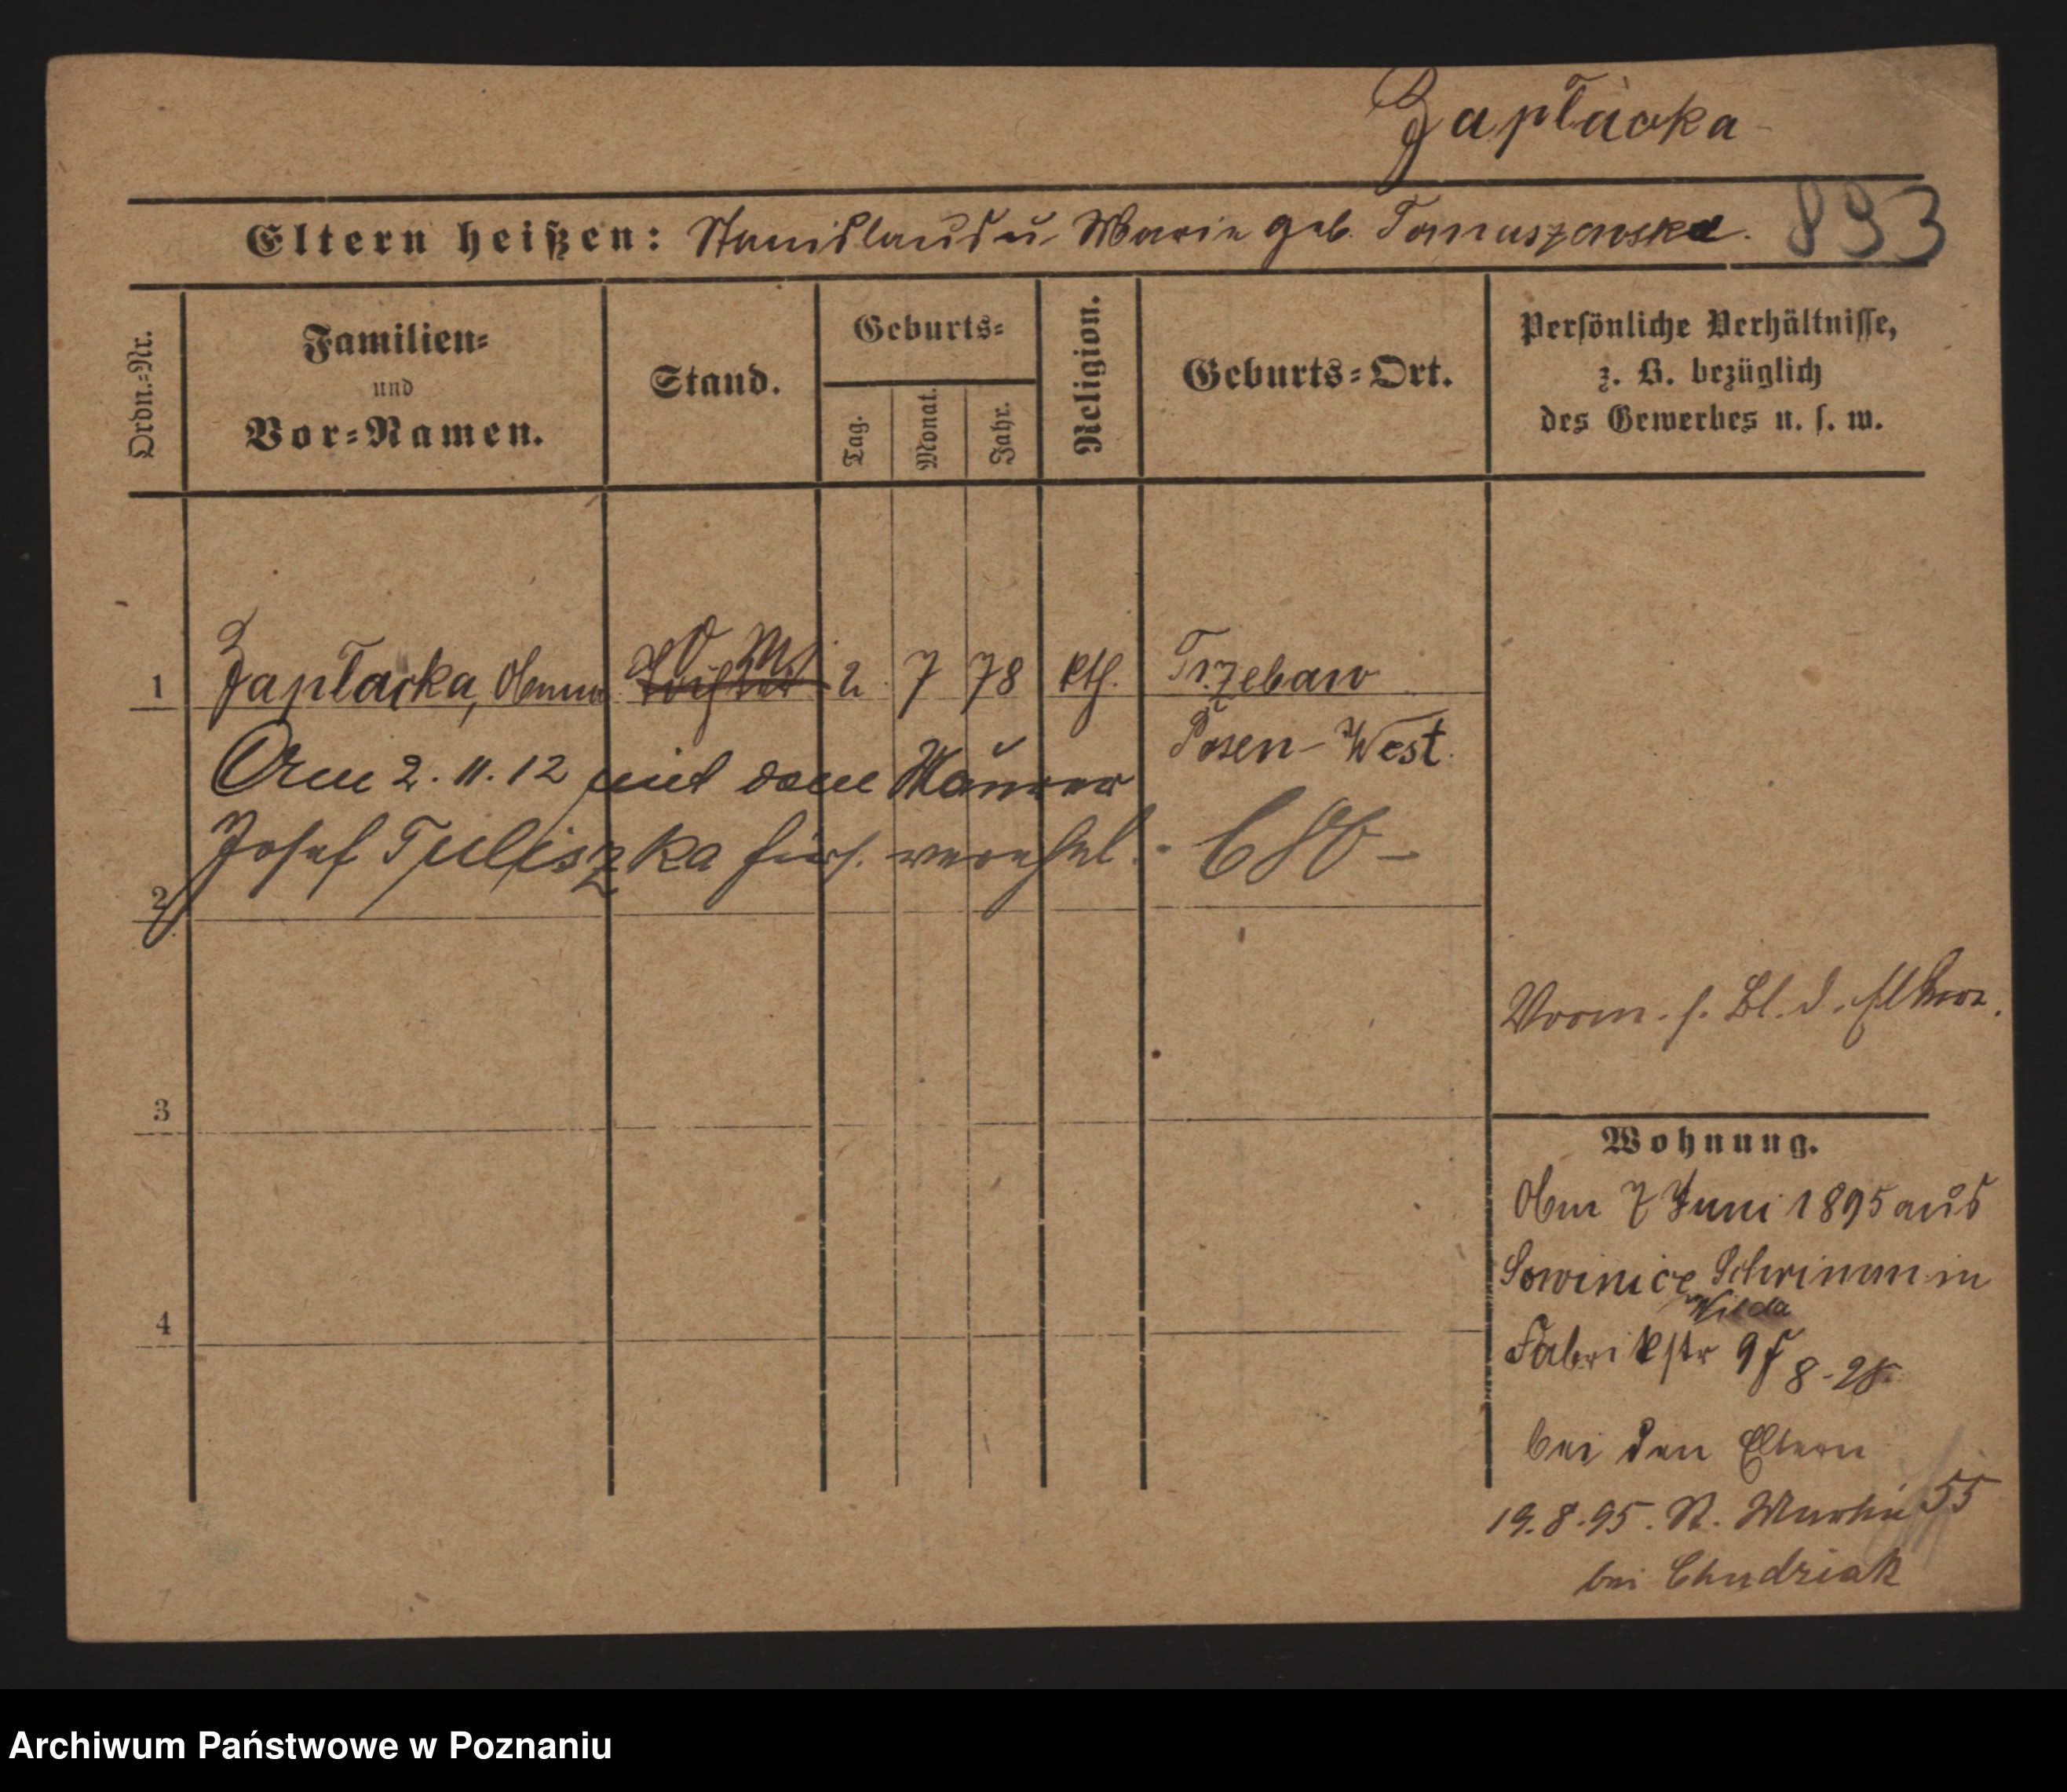 Zaptacka
Eltern heißen: Stanislaus u. Marie geb. Tomaszewska. 893
Ordn.=Nr.
Familien=
und
Vor=Namen.
Stand.
Geburts=
Tag.
Monat.
Jahr.
Religion.
Geburts=Ort.
Persönliche Verhältnisse,
z. B. bezüglich
des Gewerbes u. s. w.
1 Zaptacka, Anna 2 7 78 kth. Trzebaw
Posen-West.
Am 2.11.12 mit dem Maurer
Josef Tuliszka hier verehel.
2
3
4
Verm. s. Bl. d.
Wohnung.
Am 7 Juni 1895 aus
Sowinice Schrimm in
Wilda
Fabrikstr 9
bei den Eltern
19.8.95. St. Martin 55
bei Chudziak
Archiwum Państwowe w Poznaniu